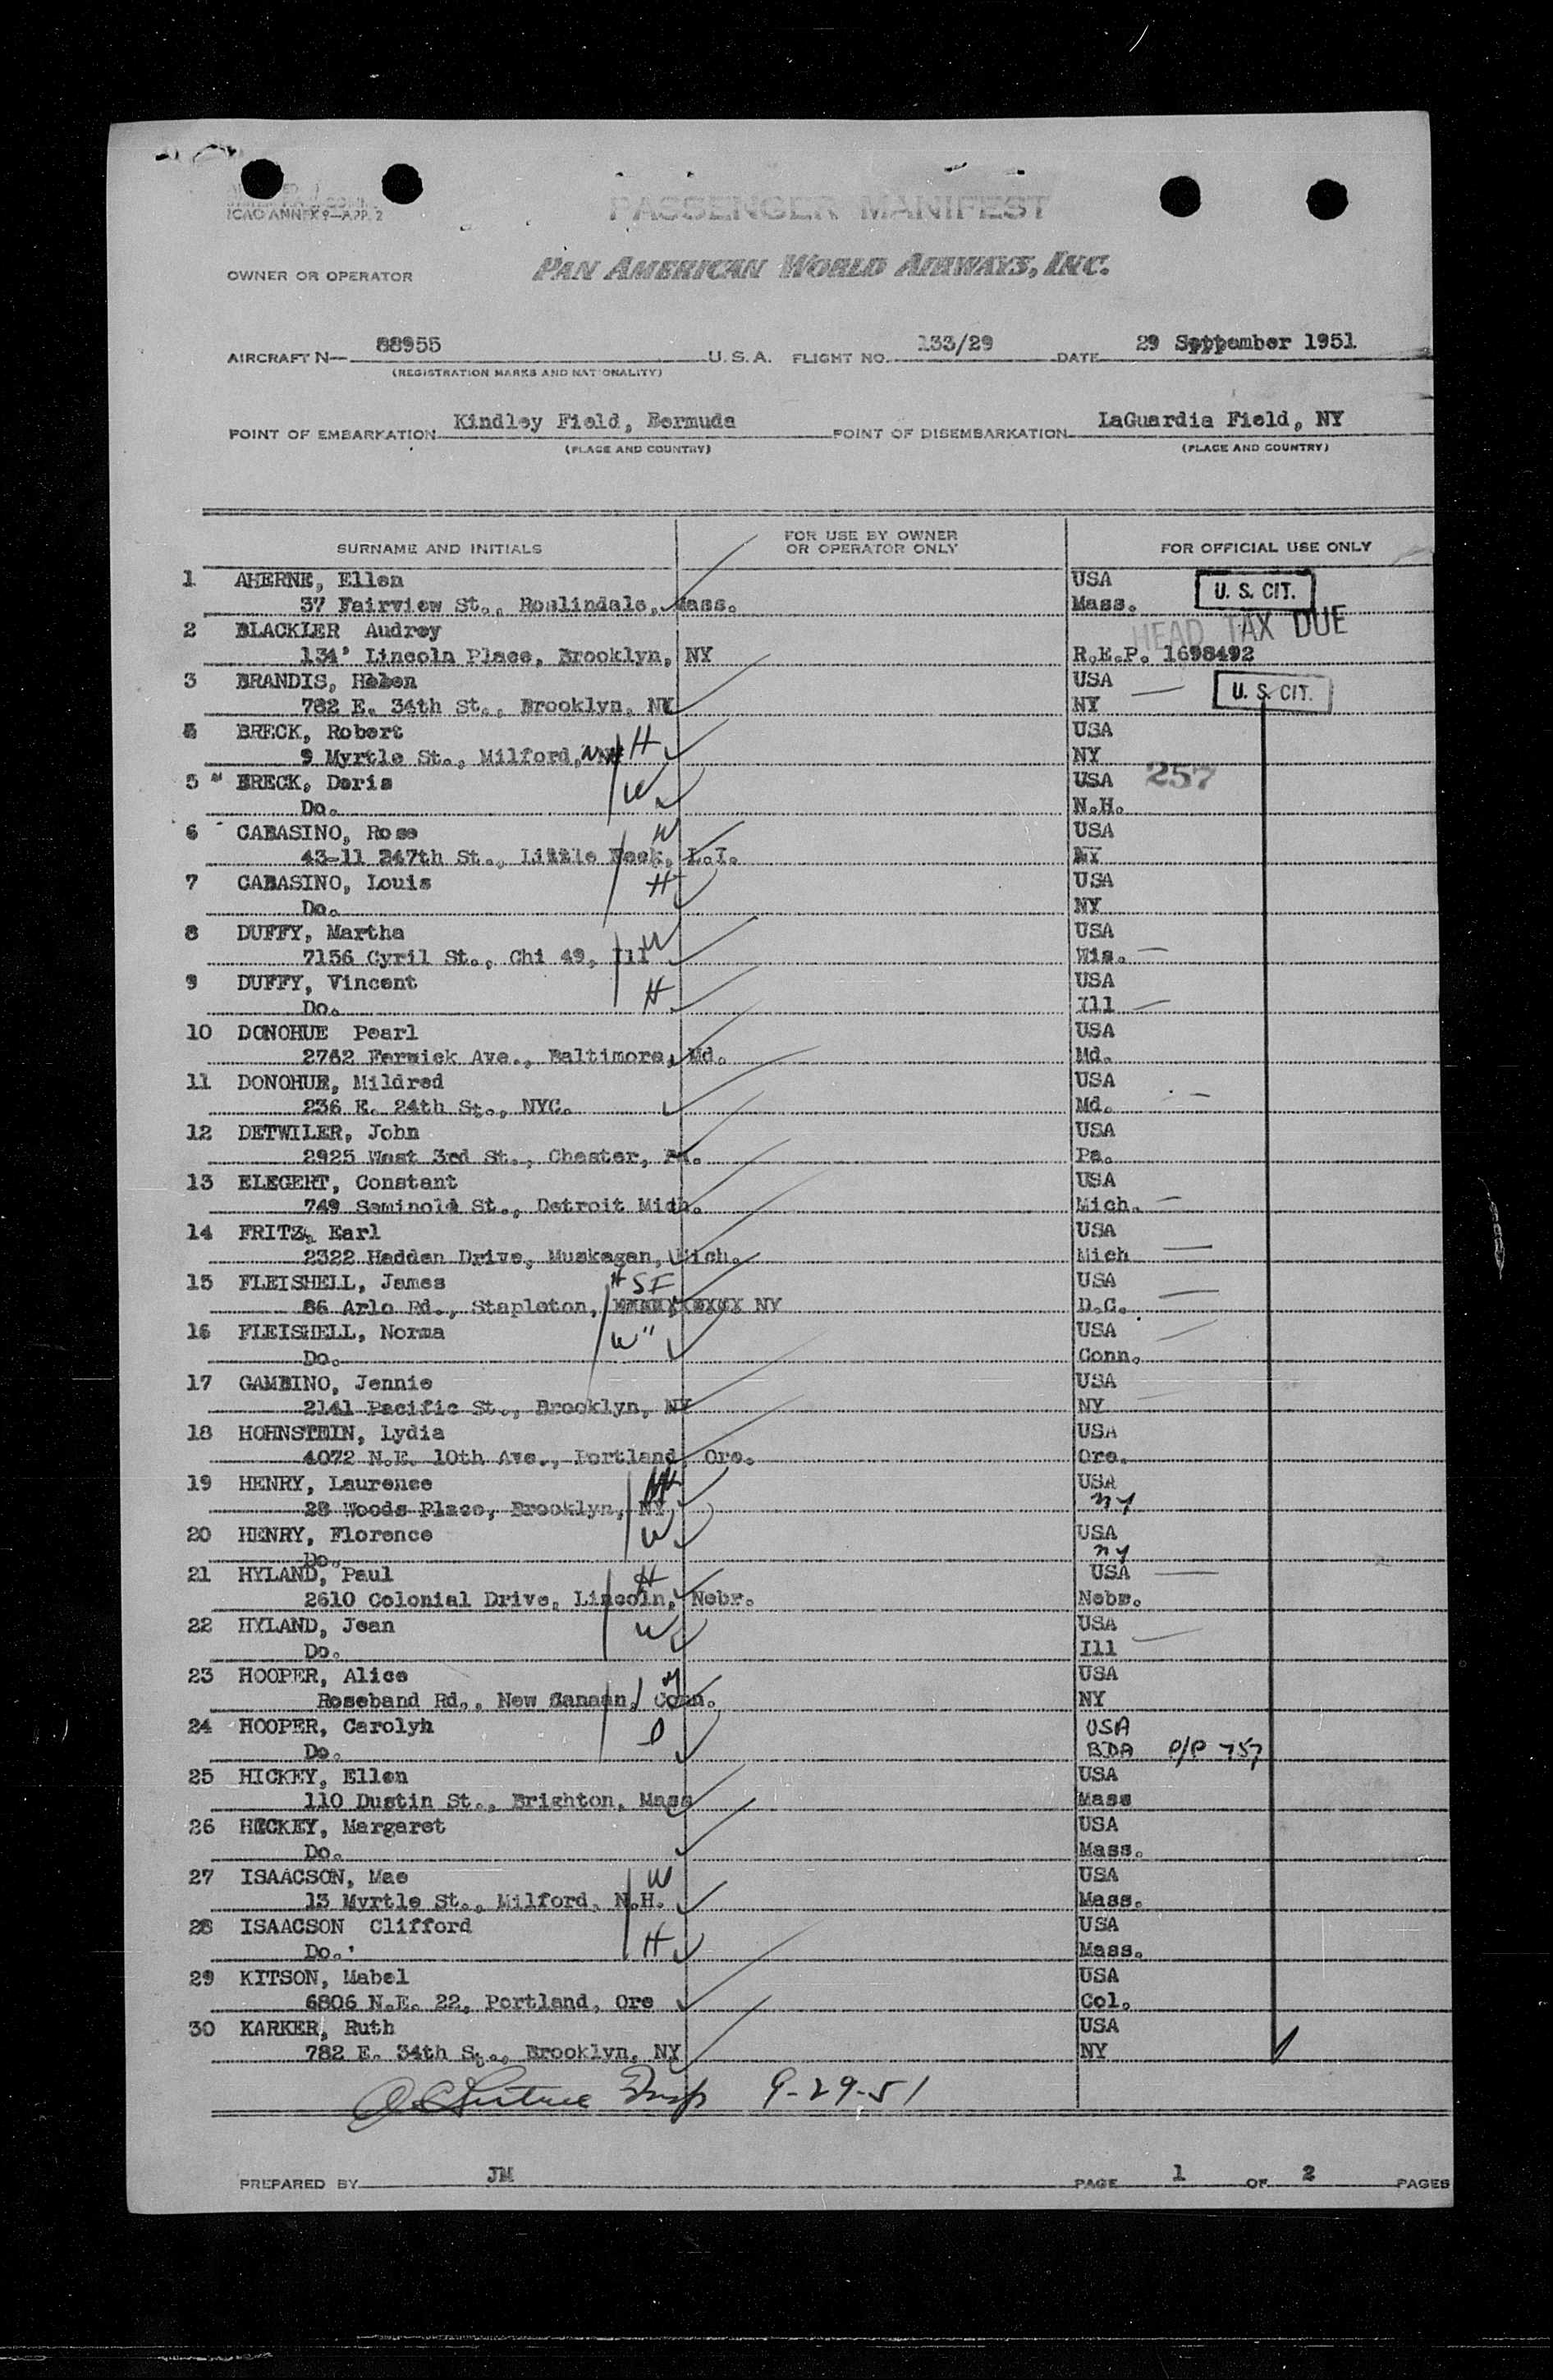 ICAO ANNEX 9—APP. 2
PASSENGER MANIFEST
OWNER OR OPERATOR PAN AMERICAN WORLD AIRWAYS, INC.
AIRCRAFT N— 88955 U.S.A. FLIGHT NO. 133/29 DATE 29 September 1951
(REGISTRATION MARKS AND NATIONALITY)
POINT OF EMBARKATION Kindley Field, Bermuda POINT OF DISEMBARKATION LaGuardia Field, NY
(PLACE AND COUNTRY) (PLACE AND COUNTRY)
SURNAME AND INITIALS FOR USE BY OWNER OR OPERATOR ONLY FOR OFFICIAL USE ONLY
1 AHERNE, Ellen USA U. S. CIT.
37 Fairview St., Roslindale, Mass. Mass.
2 BLACKLER Audrey HEAD TAX DUE
134' Lincoln Place, Brooklyn, NY R.E.P. 1698492
3 BRANDIS, Helen USA U. S. CIT.
782 E. 34th St., Brooklyn, NY NY
4 BRECK, Robert H USA
9 Myrtle St., Milford, NH NY
5 BRECK, Doris W USA 257
Do. N.H.
6 CABASINO, Rose W USA
43-11 247th St., Little Neck, L.I. NY
7 CABASINO, Louis H USA
Do. NY
8 DUFFY, Martha W USA
7156 Cyril St., Chi 49, Ill Wis.
9 DUFFY, Vincent H USA
Do. Ill
10 DONOHUE Pearl USA
2762 Fenwick Ave., Baltimore, Md. Md.
11 DONOHUE, Mildred USA
236 E. 24th St., NYC. Md.
12 DETWILER, John USA
2925 West 3rd St., Chester, PA. Pa.
13 ELEGERT, Constant USA
749 Seminole St., Detroit Mich. Mich.
14 FRITZ, Earl USA
2322 Hadden Drive, Muskagan, Mich. Mich
15 FLEISHELL, James H SF USA
86 Arlo Rd., Stapleton, NY D.C.
16 FLEISHELL, Norma W " USA
Do. Conn.
17 GAMBINO, Jennie USA
2141 Pacific St., Brooklyn, NY NY
18 HOHNSTEIN, Lydia USA
4072 N.E. 10th Ave., Portland, Ore. Ore.
19 HENRY, Laurence H USA
28 Woods Place, Brooklyn, NY NY
20 HENRY, Florence W USA
Do. NY
21 HYLAND, Paul H USA
2610 Colonial Drive, Lincoln, Nebr. Nebr.
22 HYLAND, Jean W USA
Do. Ill
23 HOOPER, Alice M USA
Roseband Rd., New Canaan, Conn. NY
24 HOOPER, Carolyn D USA
Do. BDA P/P 757
25 HICKEY, Ellen USA
110 Dustin St., Brighton, Mass Mass
26 HICKEY, Margaret USA
Do. Mass.
27 ISAACSON, Mae W USA
13 Myrtle St., Milford, N.H. Mass.
28 ISAACSON Clifford H USA
Do. Mass.
29 KITSON, Mabel USA
6806 N.E. 22, Portland, Ore Col.
30 KARKER, Ruth USA
782 E. 34th St., Brooklyn, NY NY
Insp 9-29-51
PREPARED BY JM PAGE 1 OF 2 PAGES